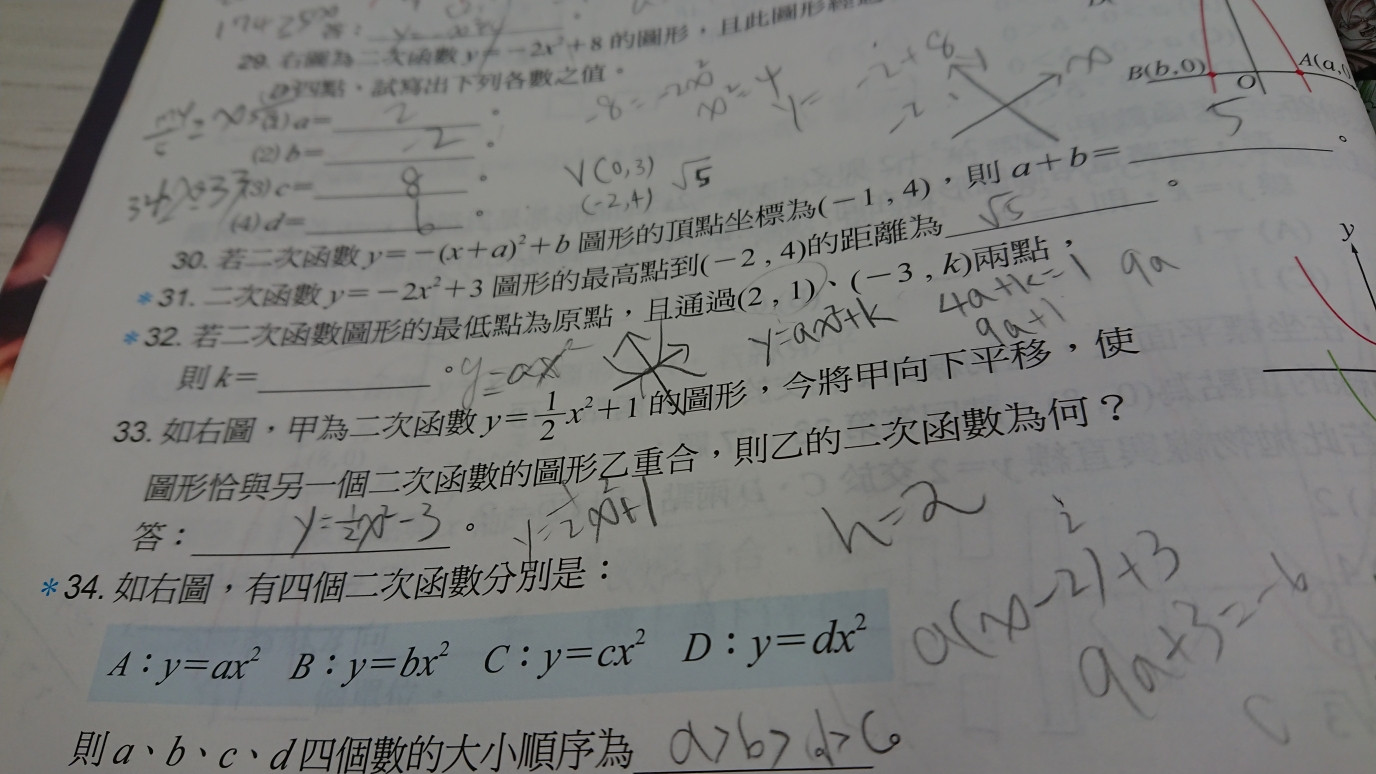 1742500 答：
29. 右圖為二次函數 y=-2x²+8 的圖形，且此圖形經過
D四點，試寫出下列各數之值。
-8=-2x²
x²=4
B(b,0) O A(a,0
(1) a= 2 。
(2) b= -2 。
(3) c= 8 。
V(0,3) √5
(-2,4)
(4) d= 6 。
30. 若二次函數 y=-(x+a)²+b 圖形的頂點坐標為(-1 , 4)，則 a+b= 5 。
*31. 二次函數 y=-2x²+3 圖形的最高點到(-2 , 4)的距離為 √5 。
*32. 若二次函數圖形的最低點為原點，且通過(2 , 1)、(-3 , k)兩點，
則 k= 。 y=ax² y=ax²+k 4a+k=1 9a
9a+1
y
33. 如右圖，甲為二次函數 y=1/2x²+1 的圖形，今將甲向下平移，使
圖形恰與另一個二次函數的圖形乙重合，則乙的二次函數為何？
答： y=1/2x²-3 。 y=1/2x²+1
h=2
*34. 如右圖，有四個二次函數分別是：
a(x-2)²+3
9a+3=-6
A：y=ax² B：y=bx² C：y=cx² D：y=dx²
則 a、b、c、d 四個數的大小順序為 a>b>d>c